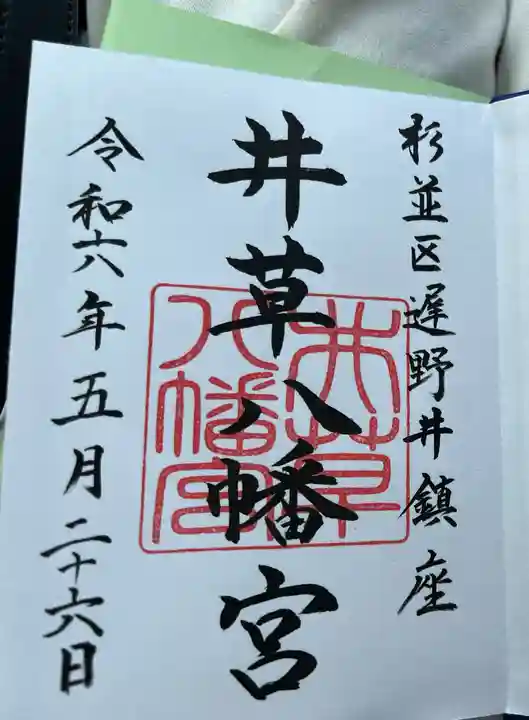 杉並区遅野井鎮座
井草八幡宮
令和六年五月二十六日
井草
八幡宮